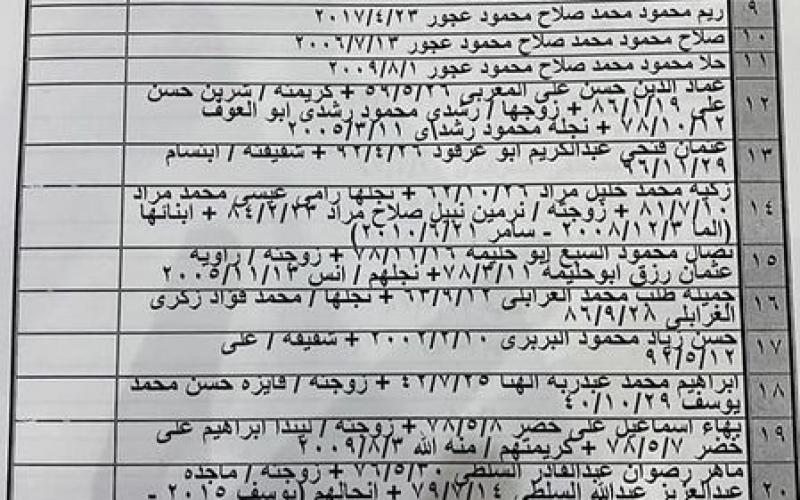 ٩ ريم محمود محمد صلاح محمود عجور ٢٠١٧/٤/٢٣
١٠ صلاح محمود محمد صلاح محمود عجور ٢٠٠٦/٧/١٣
١١ حلا محمود محمد صلاح محمود عجور ٢٠٠٩/٨/١
١٢ عماد الدين حسن على المغربى ٥٩/٥/٢٦ + كريمته / شرين حسن
على ٨٦/١/١٩ + زوجها / رشدى محمود رشدى ابو العوف
٧٨/١٠/١٢ + نجله محمود رشداى ٢٠٠٥/٣/١١
١٣ عثمان فتحي عبدالكريم ابو عرقود ٩٢/٤/٢٦ + شقيقته / ابتسام
٩٦/١١/٢٩
١٤ زكيه محمد خليل مراد ٦٢/١٠/٢٦ + نجلها رامى عيسى محمد مراد
٨١/٧/١٠ + زوجته / نرمين نبيل صلاح مراد ٨٤/٢/٢٣ + ابنائها
(الما ٢٠٠٨/١٢/٣ - سامر ٢٠١٠/٦/٢١)
١٥ نضال محمود السبع ابو حليمه ٧٨/١١/١٦ + زوجته / راويه
عثمان رزق ابوحليمه ٧٨/٣/١١+ نجلهم / انس ٢٠٠٥/١١/١٣
١٦ جميله طلب محمد الغرابلى ٦٣/٩/١٢ + نجلها / محمد فؤاد زكرى
الغرابلي ٨٦/٩/٢٨
١٧ حسن زياد محمود البربرى ٢٠٠٢/٢/١٠ + شقيقه / على
٩٢/٥/١٢
١٨ ابراهيم محمد عبدربه الهنا ٤٢/٧/٢٥ + زوجته / فايزه حسن محمد
يوسف ٤٠/١٠/٢٩
١٩ بهاء اسماعيل على خضر ٧٨/٥/٨ + زوجته / ليندا ابراهيم على
خضر ٧٨/٥/٧ + كريمتهم / منه الله ٢٠٠٩/٨/٣
٢٠ ماهر رضوان عبدالقادر السلطى ٧٦/٥/٣٠ + زوجته / ماجده
عبدالعزيز عبدالله السلطى ٧٩/٧/١٤ + انجالهم (يوسف ٢٠١٥ -